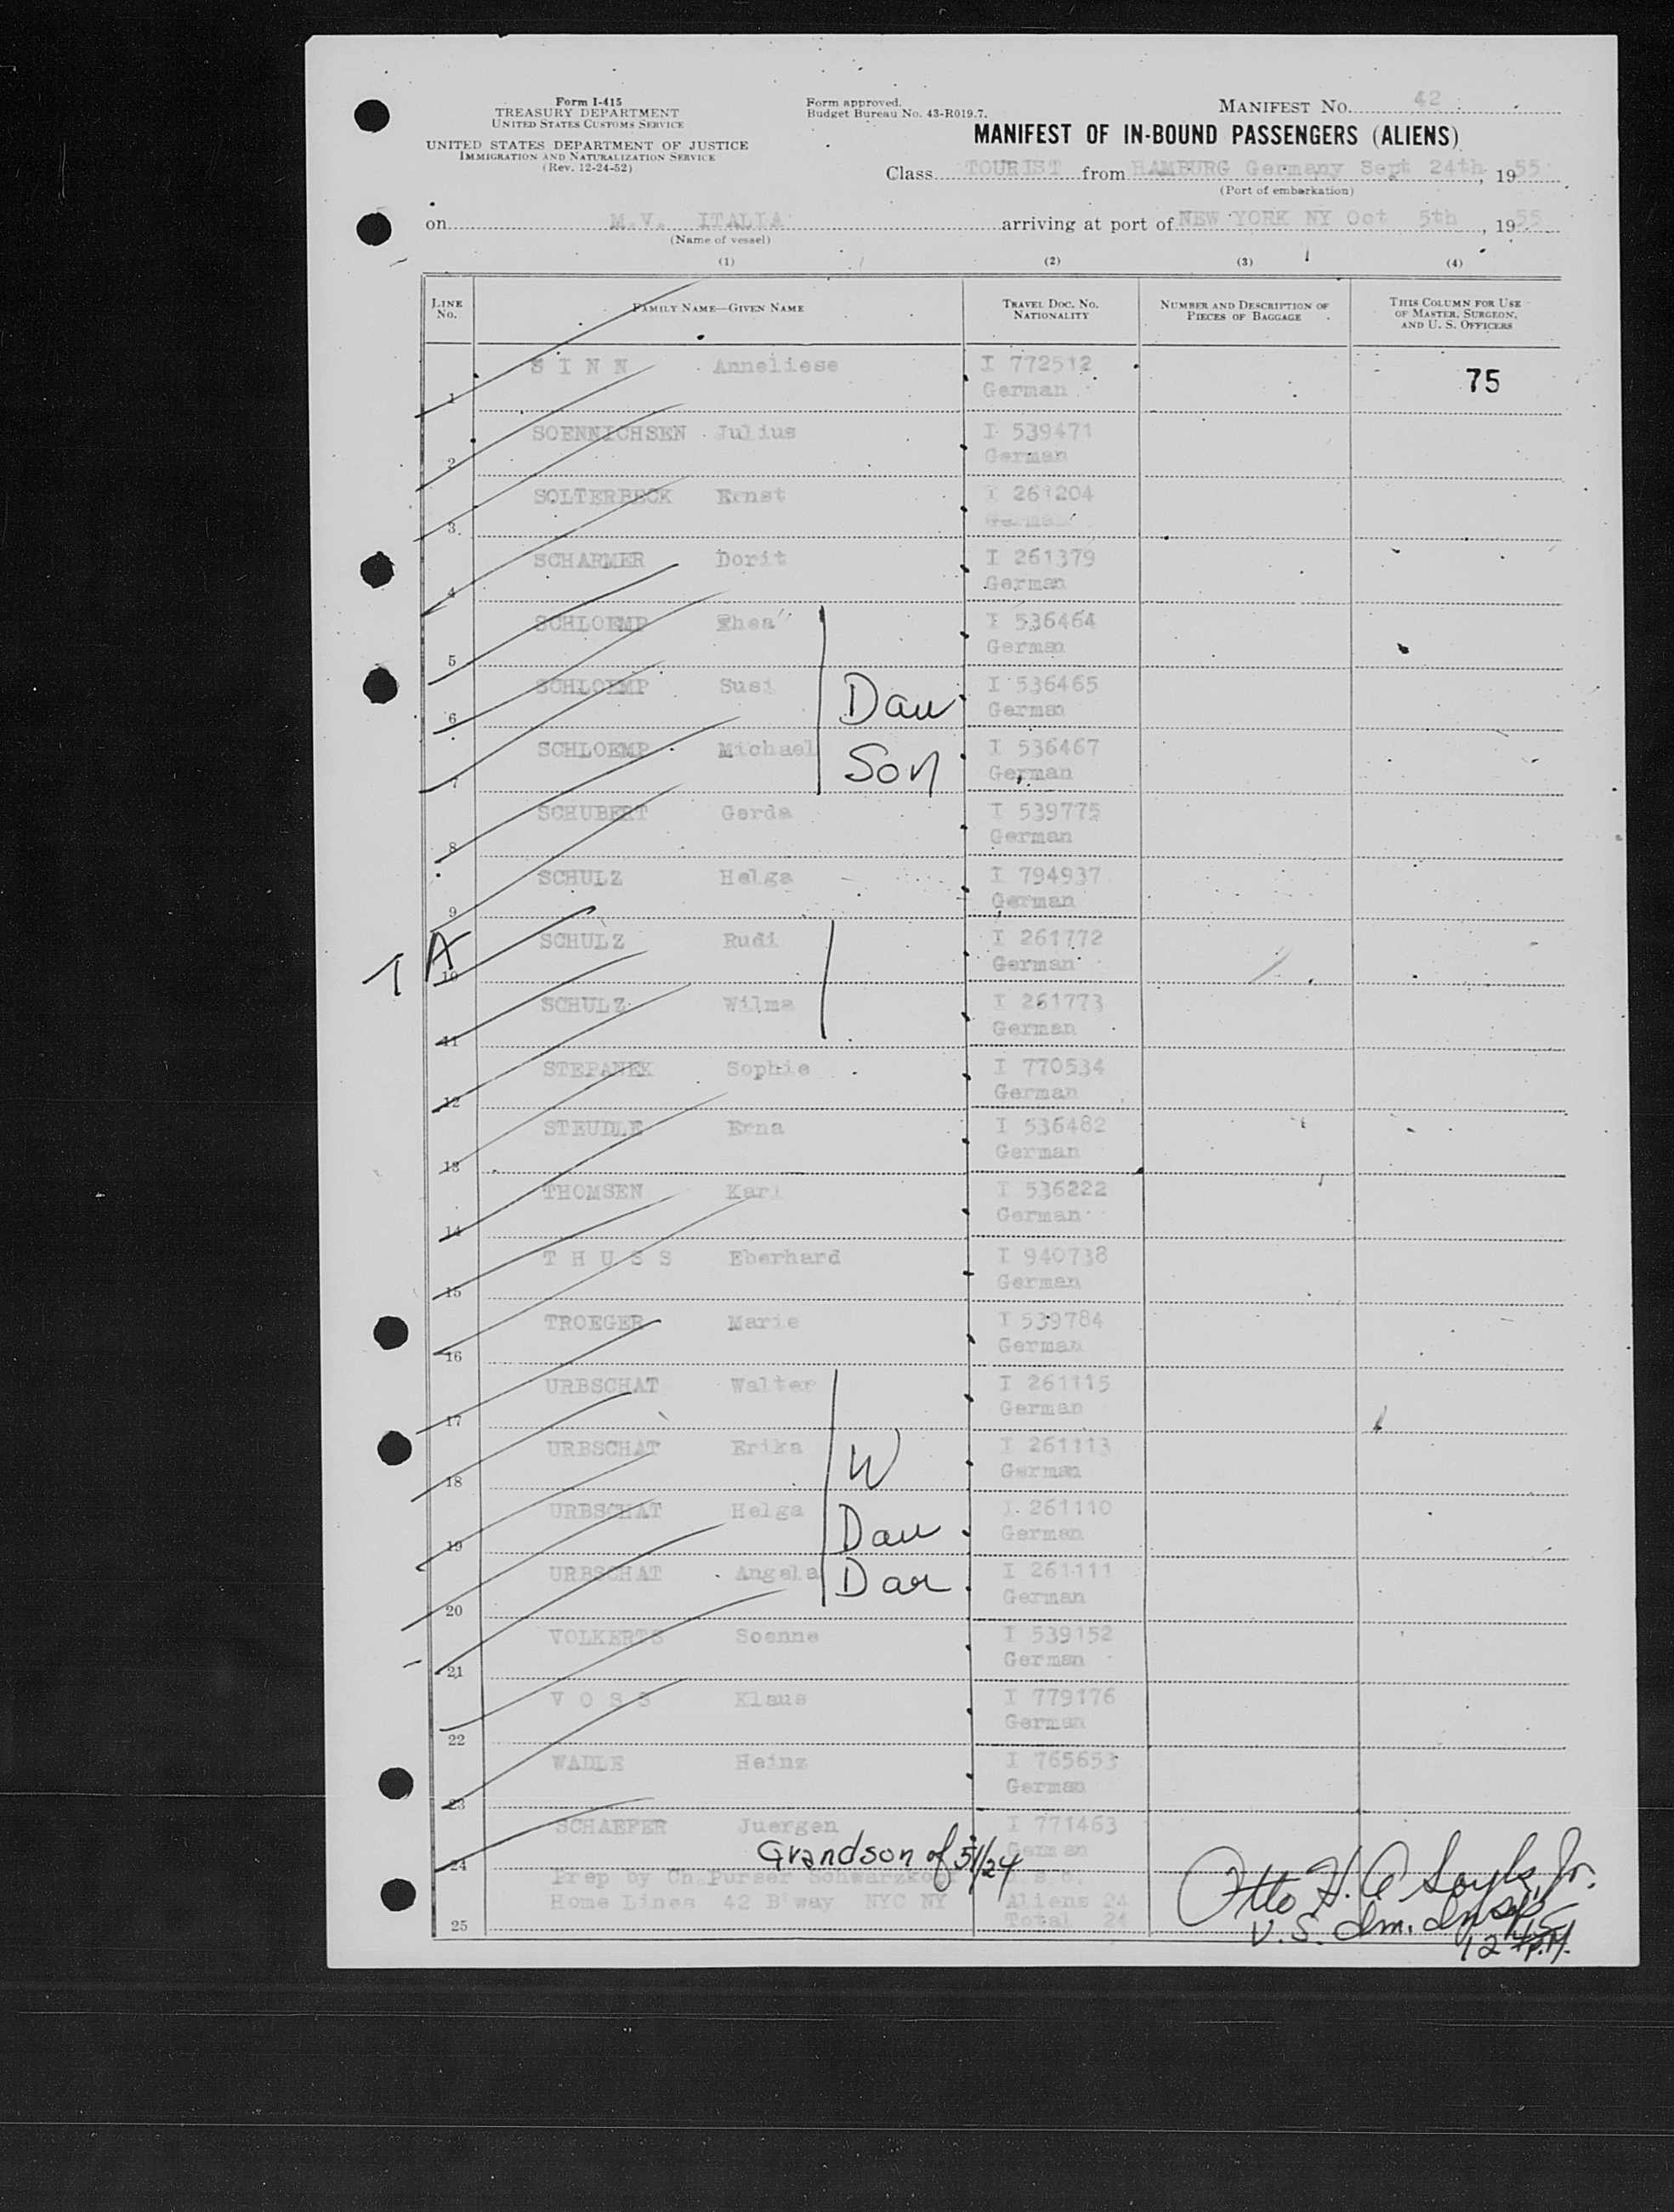 Form I-415
TREASURY DEPARTMENT
UNITED STATES CUSTOMS SERVICE
UNITED STATES DEPARTMENT OF JUSTICE
IMMIGRATION AND NATURALIZATION SERVICE
(Rev. 12-24-52)
Form approved.
Budget Bureau No. 43-R019.7.
MANIFEST NO. 42
MANIFEST OF IN-BOUND PASSENGERS (ALIENS)
Class TOURIST from HAMBURG Germany Sept 24th, 19 55
(Port of embarkation)
on M.V. ITALIA arriving at port of NEW YORK NY Oct 5th, 19 55
(Name of vessel)
(1) (2) (3) (4)
LINE NO. FAMILY NAME—GIVEN NAME TRAVEL DOC. NO. NATIONALITY NUMBER AND DESCRIPTION OF PIECES OF BAGGAGE THIS COLUMN FOR USE OF MASTER, SURGEON, AND U. S. OFFICERS
1 S I N N Anneliese I 772512 75
German
2 SOENNICHSEN Julius I 539471
German
3 SOLTERBECK Ernst I 261204
German
4 SCHARMER Dorit I 261379
German
5 SCHLOEMP Thea I 536464
German
6 SCHLOEMP Susi Dau I 536465
German
7 SCHLOEMP Michael Son I 536467
German
8 SCHUBERT Gerda I 539775
German
9 SCHULZ Helga I 794937
German
1 A
10 SCHULZ Rudi I 261772
German
11 SCHULZ Wilma I 261773
German
12 STEPANEK Sophie I 770534
German
13 STEUDLE Erna I 536482
German
14 THOMSEN Karl I 536222
German
15 T H U S S Eberhard I 940738
German
16 TROEGER Marie I 539784
German
17 URBSCHAT Walter I 261115
German
18 URBSCHAT Erika W I 261113
German
19 URBSCHAT Helga Dau I 261110
German
20 URBSCHAT Angela Dau I 261111
German
21 VOLKERTS Soenne I 539152
German
22 V O S S Klaus I 779176
German
23 WADLE Heinz I 765653
German
24 SCHAEFER Juergen I 771463
Grandson of 51/24 German
Prep by Ch.Purser Schwarzkopf
Home Lines 42 B'way NYC NY Aliens 24
25 Total 24
Otto H. Jr.
U.S. Im. Insp
12 P.M.